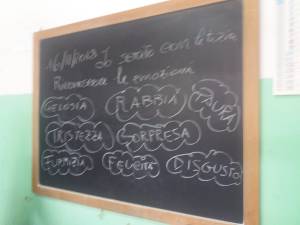 16/11/2018 Io sento con
Riconoscere le emozioni
GELOSIA RABBIA PAURA
TRISTEZZA SORPRESA
FURBIZIA FELICITÀ DISGUSTO